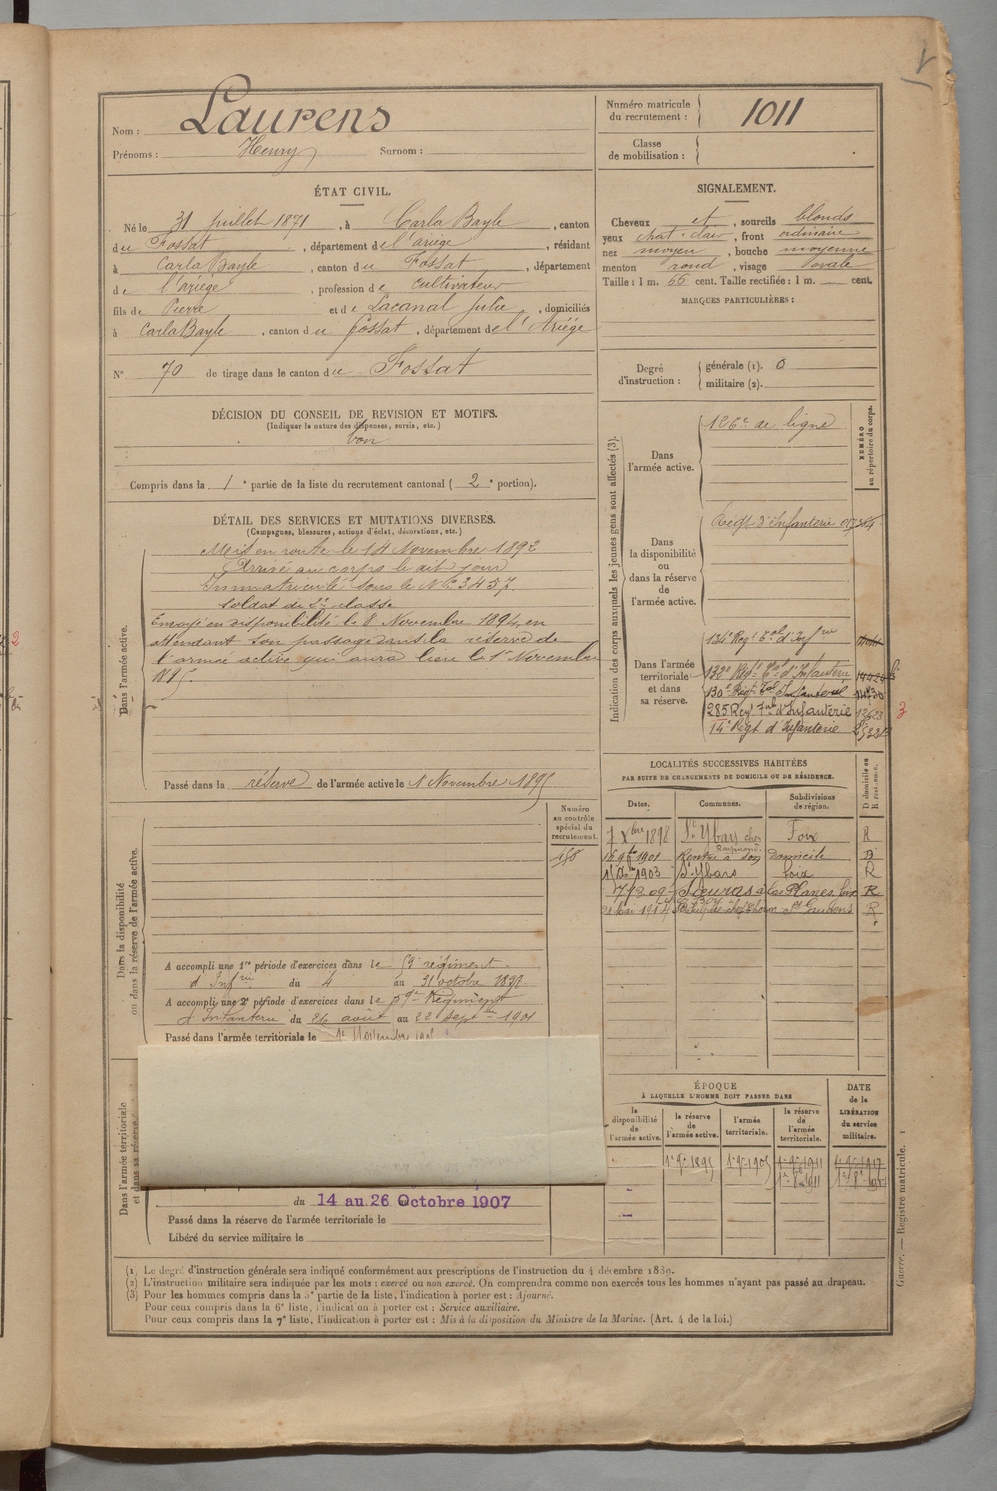 Nom : Laurens
Prénoms : Henry Surnom :
Numéro matricule du recrutement : 1011
Classe de mobilisation :
ÉTAT CIVIL.
Né le 31 juillet 1871, à Carla Bayle, canton
du Fossat, département de l'ariège, résidant
à Carla Bayle, canton du Fossat, département
de l'ariège, profession de cultivateur
fils de Pierre et de Lacanal Julie, domiciliés
à Carla Bayle, canton du Fossat, département de l'Ariège
N° 70 de tirage dans le canton du Fossat
SIGNALEMENT.
Cheveux et, sourcils blonds
yeux chat. clair, front ordinaire
nez moyen, bouche moyenne
menton rond, visage ovale
Taille : 1 m. 66 cent. Taille rectifiée : 1 m. cent.
MARQUES PARTICULIÈRES :
Degré d'instruction : générale (1). 0
militaire (2).
DÉCISION DU CONSEIL DE REVISION ET MOTIFS.
(Indiquer la nature des dispenses, sursis, etc.)
bon
Compris dans la 1e partie de la liste du recrutement cantonal (2e portion).
DÉTAIL DES SERVICES ET MUTATIONS DIVERSES.
(Campagnes, blessures, actions d'éclat, décorations, etc.)
Dans l'armée active.
Mis en route le 14 Novembre 1892
Arrivé au corps le dit jour
Immatriculé sous le N° 3457
Soldat de 2e classe
Envoyé en disponibilité le 8 Novembre 1894, en
attendant son passage dans la réserve de
l'armée active qui aura lieu le 1er Novembre
1895.
Passé dans la réserve de l'armée active le 1 Novembre 1895
Indication des corps auxquels les jeunes gens sont affectés (3).
NUMÉRO au répertoire du corps.
Dans l'armée active.
126e de ligne
Dans la disponibilité ou dans la réserve de l'armée active.
Régt d'Infanterie
Dans l'armée territoriale et dans sa réserve.
134e Régt Tal d'Infrie
132e Régt Tal d'Infanterie
130e Régt Tal Infanterie
285 Regt Tal d'Infanterie
14e Régt d'Infanterie
3
LOCALITÉS SUCCESSIVES HABITÉES
PAR SUITE DE CHANGEMENTS DE DOMICILE OU DE RÉSIDENCE.
Dates. Communes. Subdivisions de région. D domicile ou R résidence.
7 Xbre 1898 St Ybars chez Raymond. Foix R
1901 Rentré à son domicile D
1903 St Ybars Foix R
R
1914 St Gaudens R
Dans la disponibilité ou dans la réserve de l'armée active.
Numéro au contrôle spécial du recrutement.
A accompli une 1re période d'exercices dans le 59e régiment
d'Infrie du 4 au 31 octobre 1897
A accompli une 2e période d'exercices dans le 59e Régiment
d'Infanterie du 26 août au 22 septbre 1901
Passé dans l'armée territoriale le
Dans l'armée territoriale et dans sa réserve.
du 14 au 26 Octobre 1907
Passé dans la réserve de l'armée territoriale le
Libéré du service militaire le
ÉPOQUE
À LAQUELLE L'HOMME DOIT PASSER DANS
la disponibilité de l'armée active. la réserve de l'armée active. l'armée territoriale. la réserve de l'armée territoriale. DATE de la LIBÉRATION du service militaire.
1er 9bre 1895 1er 9bre 1905 1er 9bre 1911 1er 9bre 1917
(1) Le degré d'instruction générale sera indiqué conformément aux prescriptions de l'instruction du 4 décembre 1889.
(2) L'instruction militaire sera indiquée par les mots : exercé ou non exercé. On comprendra comme non exercés tous les hommes n'ayant pas passé au drapeau.
(3) Pour les hommes compris dans la 5e partie de la liste, l'indication à porter est : Ajourné.
Pour ceux compris dans la 6e liste, l'indication à porter est : Service auxiliaire.
Pour ceux compris dans la 7e liste, l'indication à porter est : Mis à la disposition du Ministre de la Marine. (Art. 4 de la loi.)
Guerre. — Registre matricule. 1